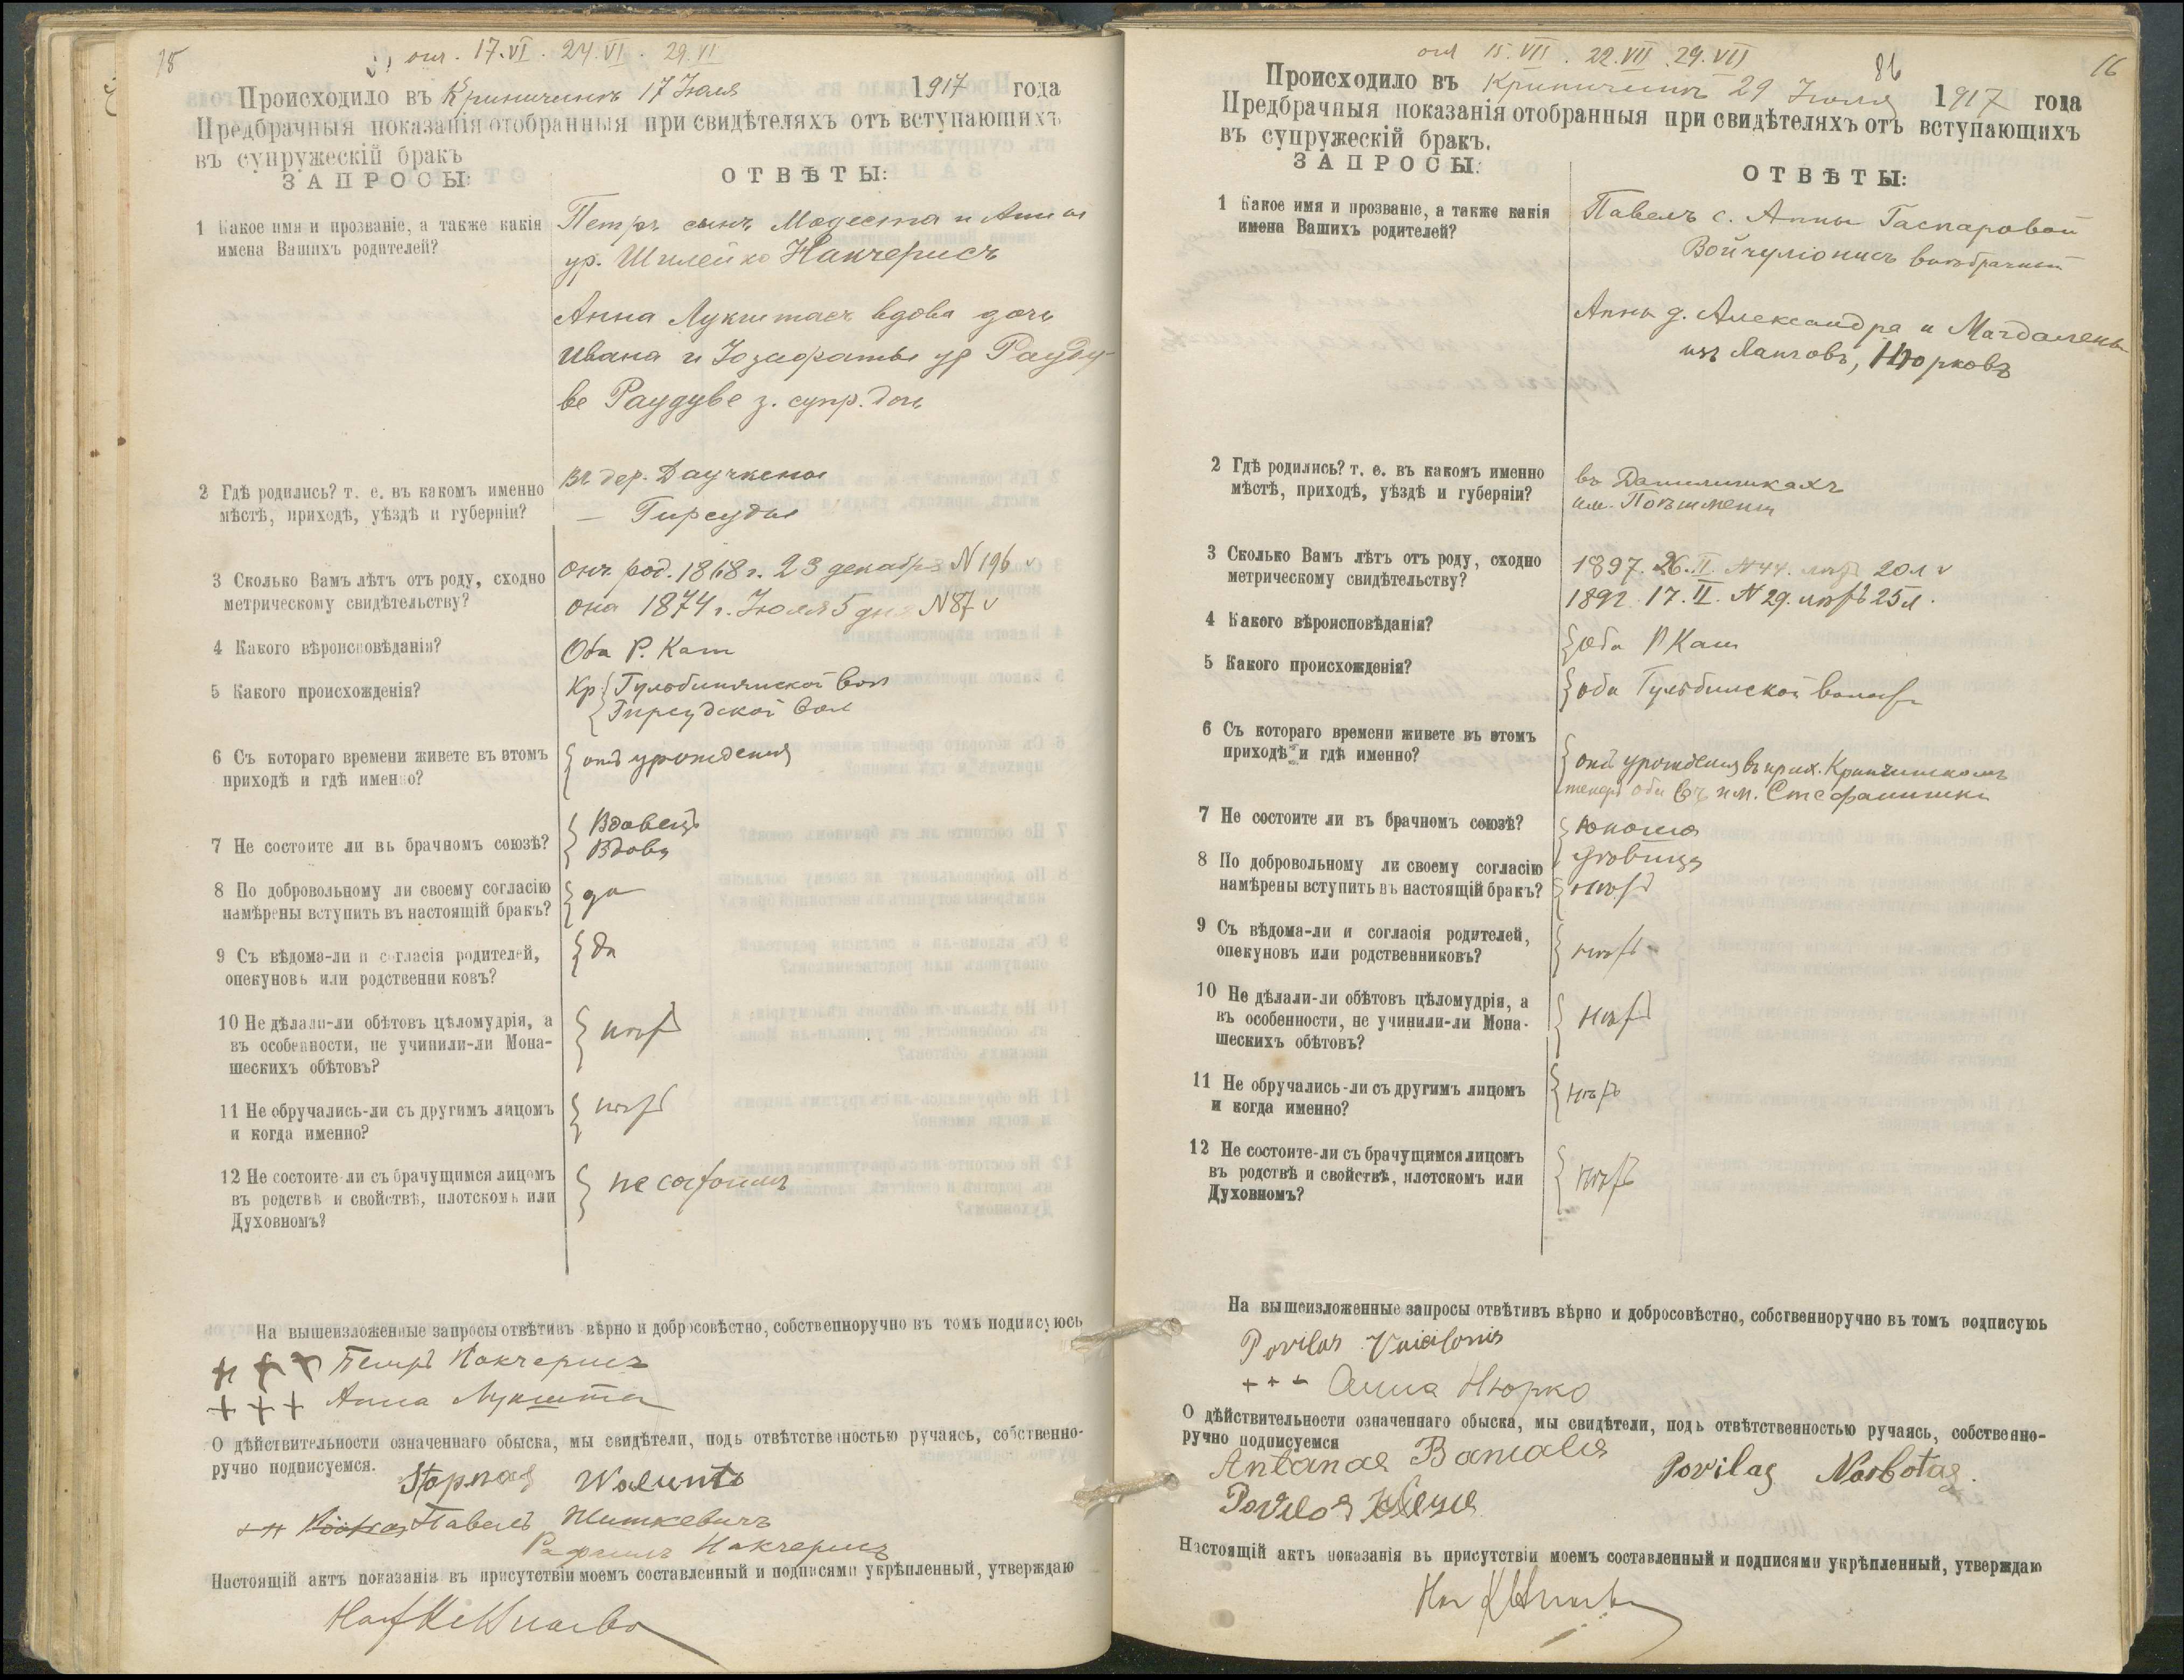 15
огл. 17.VI. 24.VI. 29.VI
Происходило въ Криничинѣ 17 Июля 1917 года
Предбрачныя показанія отобранныя при свидѣтеляхъ отъ вступающихъ
въ супружескій бракъ
ЗАПРОСЫ:
ОТВѢТЫ:
1 Какое имя и прозваніе, а также какія
имена Вашихъ родителей?
Петръ сынъ Модеста и Анны
ур. Шилейко Накчерисъ
Анна Лукштасъ вдова дочь
Ивана и Іозафаты ур Рауду-
ве Раудуве з. супр. дочь
2 Гдѣ родились? т. е. въ какомъ именно
мѣстѣ, приходѣ, уѣздѣ и губерніи?
Въ дер.
— Гирсуды
3 Сколько Вамъ лѣтъ отъ роду, сходно
метрическому свидѣтельству?
онъ род. 1868 г. 23 декабря N 196 v
она 1874 г. Июля 5 дня N 87 v
4 Какого вѣроисповѣданія?
Оба Р. Кат
5 Какого происхожденія?
Кр { Гульбинянской вол
{ Гирсудской вол
6 Съ котораго времени живете въ этомъ
приходѣ и гдѣ именно?
{ отъ урожденія
7 Не состоите ли въ брачномъ союзѣ?
{ Вдовецъ
Вдова
8 По добровольному ли своему согласію
намѣрены вступить въ настоящій бракъ?
{ да
9 Съ вѣдома-ли и согласія родителей,
опекуновъ или родственни ковъ?
{ да
10 Не дѣлали-ли обѣтовъ цѣломудрія, а
въ особенности, не учинили-ли Мона-
шескихъ обѣтовъ?
{ нѣтъ
11 Не обручались-ли съ другимъ лицомъ
и когда именно?
{ нѣтъ
12 Не состоите-ли съ брачущимся лицомъ
въ родствѣ и свойствѣ, плотскомъ или
Духовномъ?
{ не состоимъ
На вышеизложенные запросы отвѣтивъ вѣрно и добросовѣстно, собственноручно въ томъ подписуюсь
+ + + Петръ Накчерисъ
+ + + Анна Лукшта
О дѣйствительности означеннаго обыска, мы свидѣтели, подъ отвѣтственностью ручаясь, собственно-
ручно подписуемся.
Stapnas Walunts
Павелъ Шишкевичъ
Рафаилъ Накчерисъ
Настоящій актъ показанія въ присутствіи моемъ составленный и подписями укрѣпленный, утверждаю
86
16
огл 15.VII. 22.VII. 29.VII
Происходило въ Криничинѣ 29 Июля 1917 года
Предбрачныя показанія отобранныя при свидѣтеляхъ отъ вступающихъ
въ супружескій бракъ.
ЗАПРОСЫ:
ОТВѢТЫ:
1 Какое имя и прозваніе, а также какія
имена Вашихъ родителей?
Павелъ с. Анны Гаспаровой
Войчуліонисъ внѣбрачный
Анны д. Александра и Магдалены
изъ Лапговъ, Нюрковъ
2 Гдѣ родились? т. е. въ какомъ именно
мѣстѣ, приходѣ, уѣздѣ и губерніи?
въ Данилишкахъ
им.
3 Сколько Вамъ лѣтъ отъ роду, сходно
метрическому свидѣтельству?
1897. 26. II. N 44. лѣтъ 20 л v
1892. 17. II. N 29. лѣтъ 25 л.
4 Какого вѣроисповѣданія?
{ оба Р Кат
5 Какого происхожденія?
{ оба Гульбинской волости
6 Съ котораго времени живете въ этомъ
приходѣ и гдѣ именно?
{ отъ урожденія въ прих. Криничинскомъ
теперь оба въ им. Стефанишки
7 Не состоите ли въ брачномъ союзѣ?
{ юноша
дѣвица
8 По добровольному ли своему согласію
намѣрены вступить въ настоящій бракъ?
{ нѣтъ
9 Съ вѣдома-ли и согласія родителей,
опекуновъ или родственниковъ?
{ нѣтъ
10 Не дѣлали-ли обѣтовъ цѣломудрія, а
въ особенности, не учинили-ли Мона-
шескихъ обѣтовъ?
{ нѣтъ
11 Не обручались-ли съ другимъ лицомъ
и когда именно?
{ нѣтъ
12 Не состоите-ли съ брачущимся лицомъ
въ родствѣ и свойствѣ, плотскомъ или
Духовномъ?
{ нѣтъ
На вышеизложенные запросы отвѣтивъ вѣрно и добросовѣстно, собственноручно въ томъ подписуюь
Povilas Vaicilonis
+ + - Анна Нюрко
О дѣйствительности означеннаго обыска, мы свидѣтели, подъ отвѣтственностью ручаясь, собственно-
ручно подписуемся
Antanas Banialis
Povilas Narbotas.
Povilas
Настоящій актъ показанія въ присутствіи моемъ составленный и подписями укрѣпленный, утверждаю